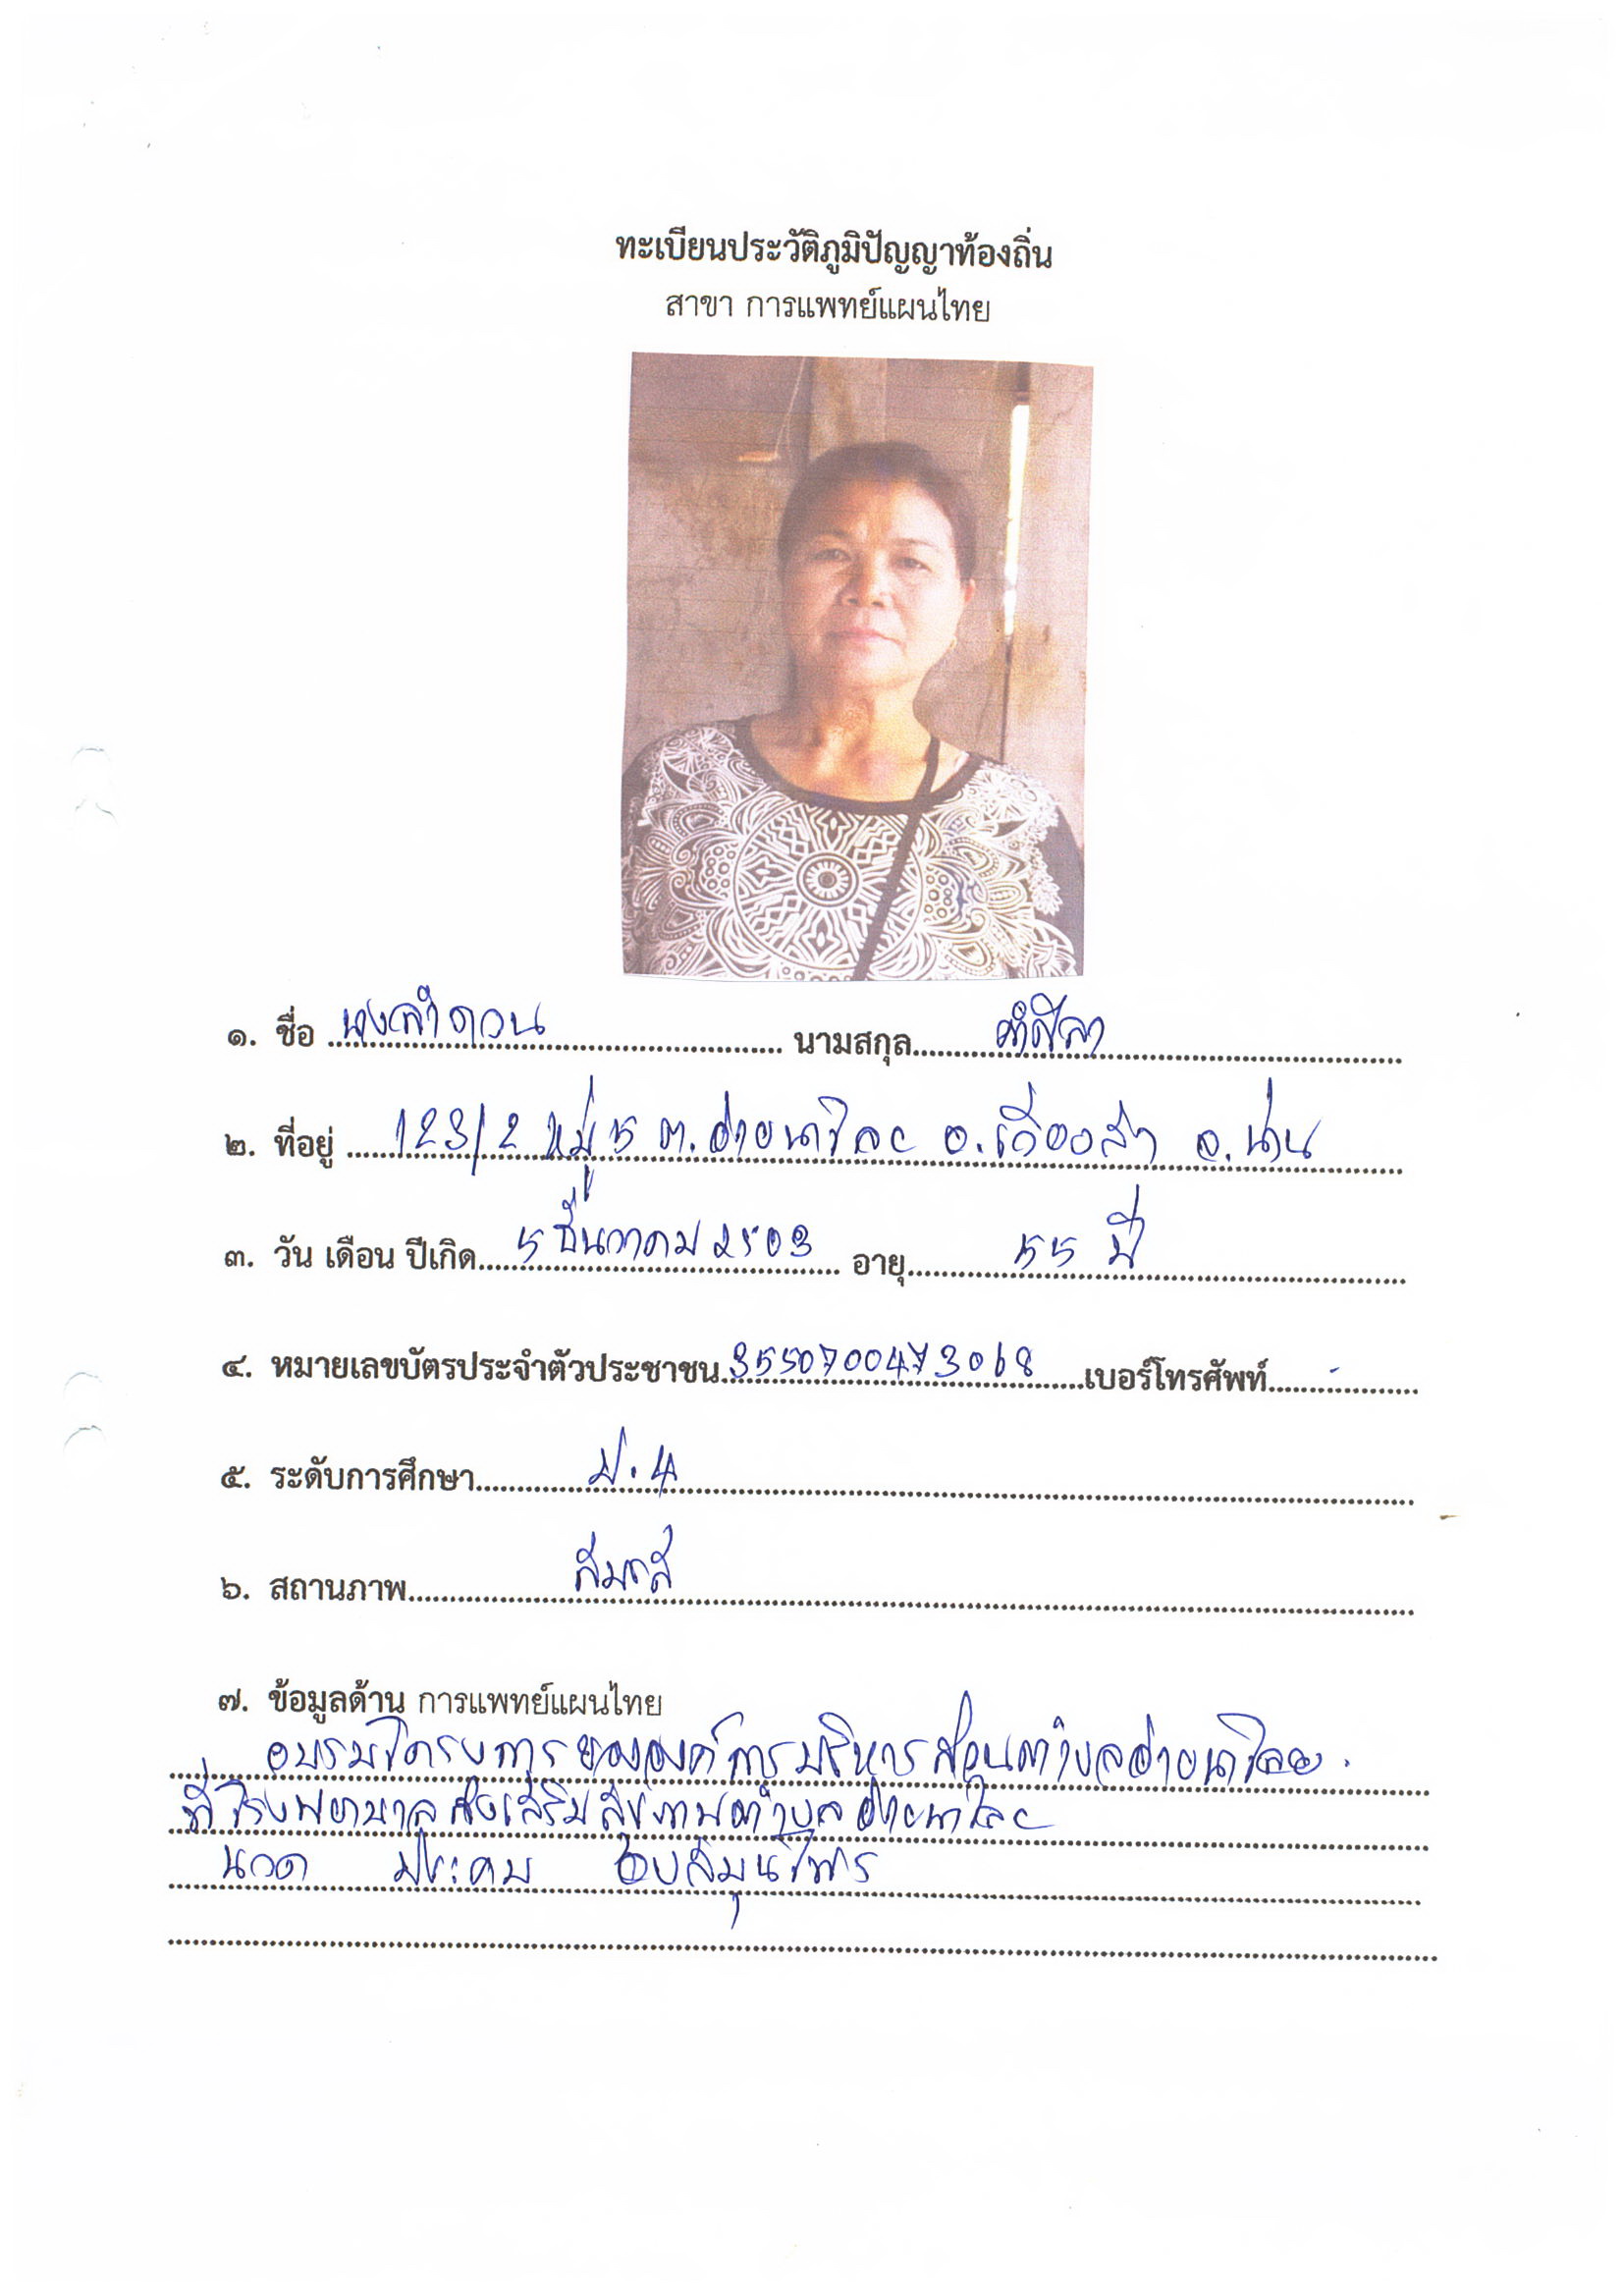 ทะเบียนประวัติภูมิปัญญาท้องถิ่น
สาขา การแพทย์แผนไทย
๑. ชื่อ นางลำดวน นามสกุล
๒. ที่อยู่ 123/2 หมู่ 5 ต.อ่ายนาไลย อ.เวียงสา จ.น่าน
๓. วัน เดือน ปีเกิด 5 ธันวาคม 2503 อายุ 55 ปี
๔. หมายเลขบัตรประจำตัวประชาชน 3550700473068 เบอร์โทรศัพท์ -
๕. ระดับการศึกษา ป.4
๖. สถานภาพ สมรส
๗. ข้อมูลด้าน การแพทย์แผนไทย
อบรมโครงการขององค์การบริหารส่วนตำบลอ่ายนาไลย
ที่โรงพยาบาลส่งเสริมสุขภาพตำบลอ่ายนาไลย
นวด ประคบ อบสมุนไพร